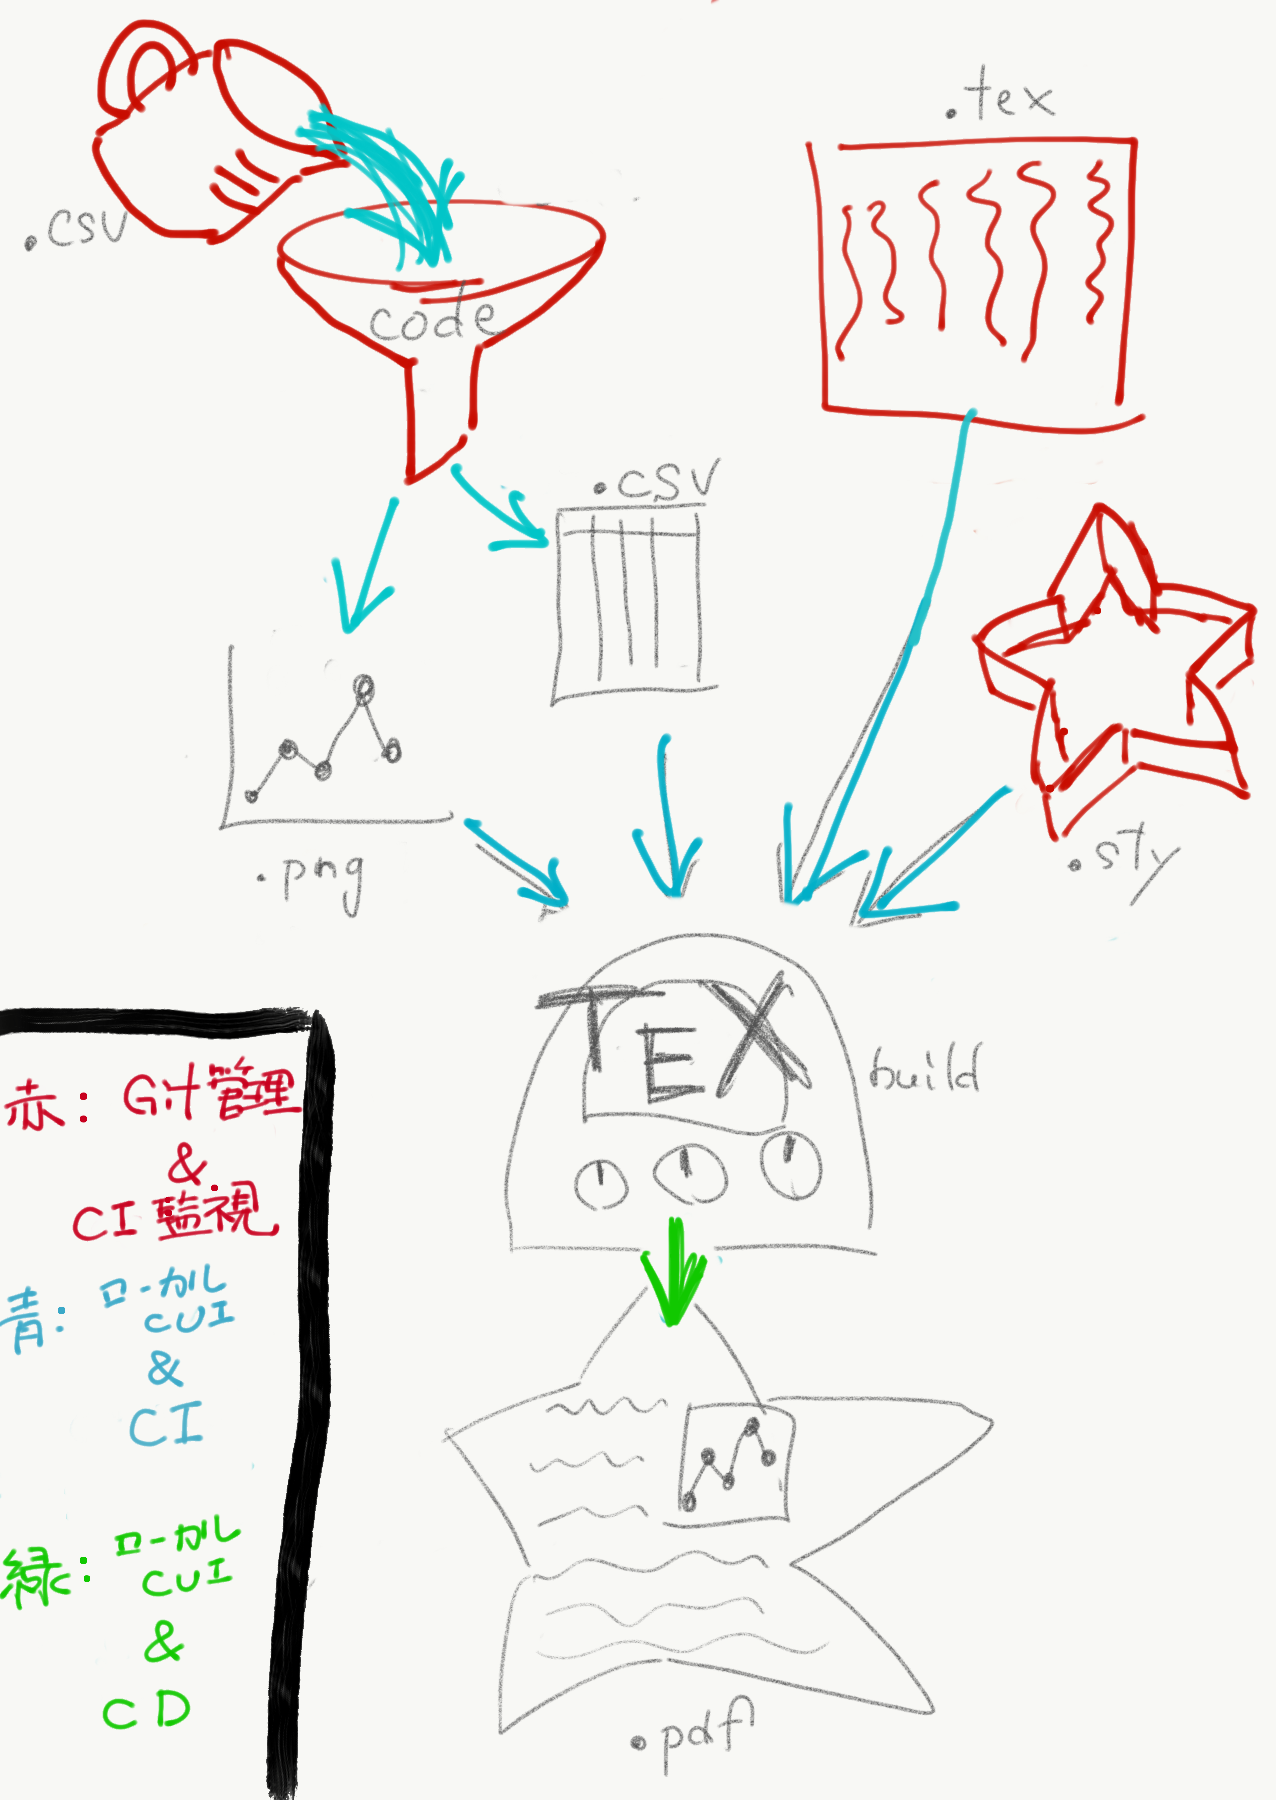 .csv
code
.tex
.csv
.png
.sty
TEX
build
赤: Git管理
&
CI 監視
青: ローカル
CUI
&
CI
緑: ローカル
CUI
&
CD
.pdf